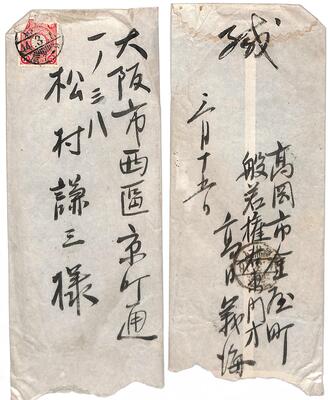 大阪市西區京町通
一ノ三八
松村謙三様
緘
三月十五日
高岡市金屋町
般若
義海